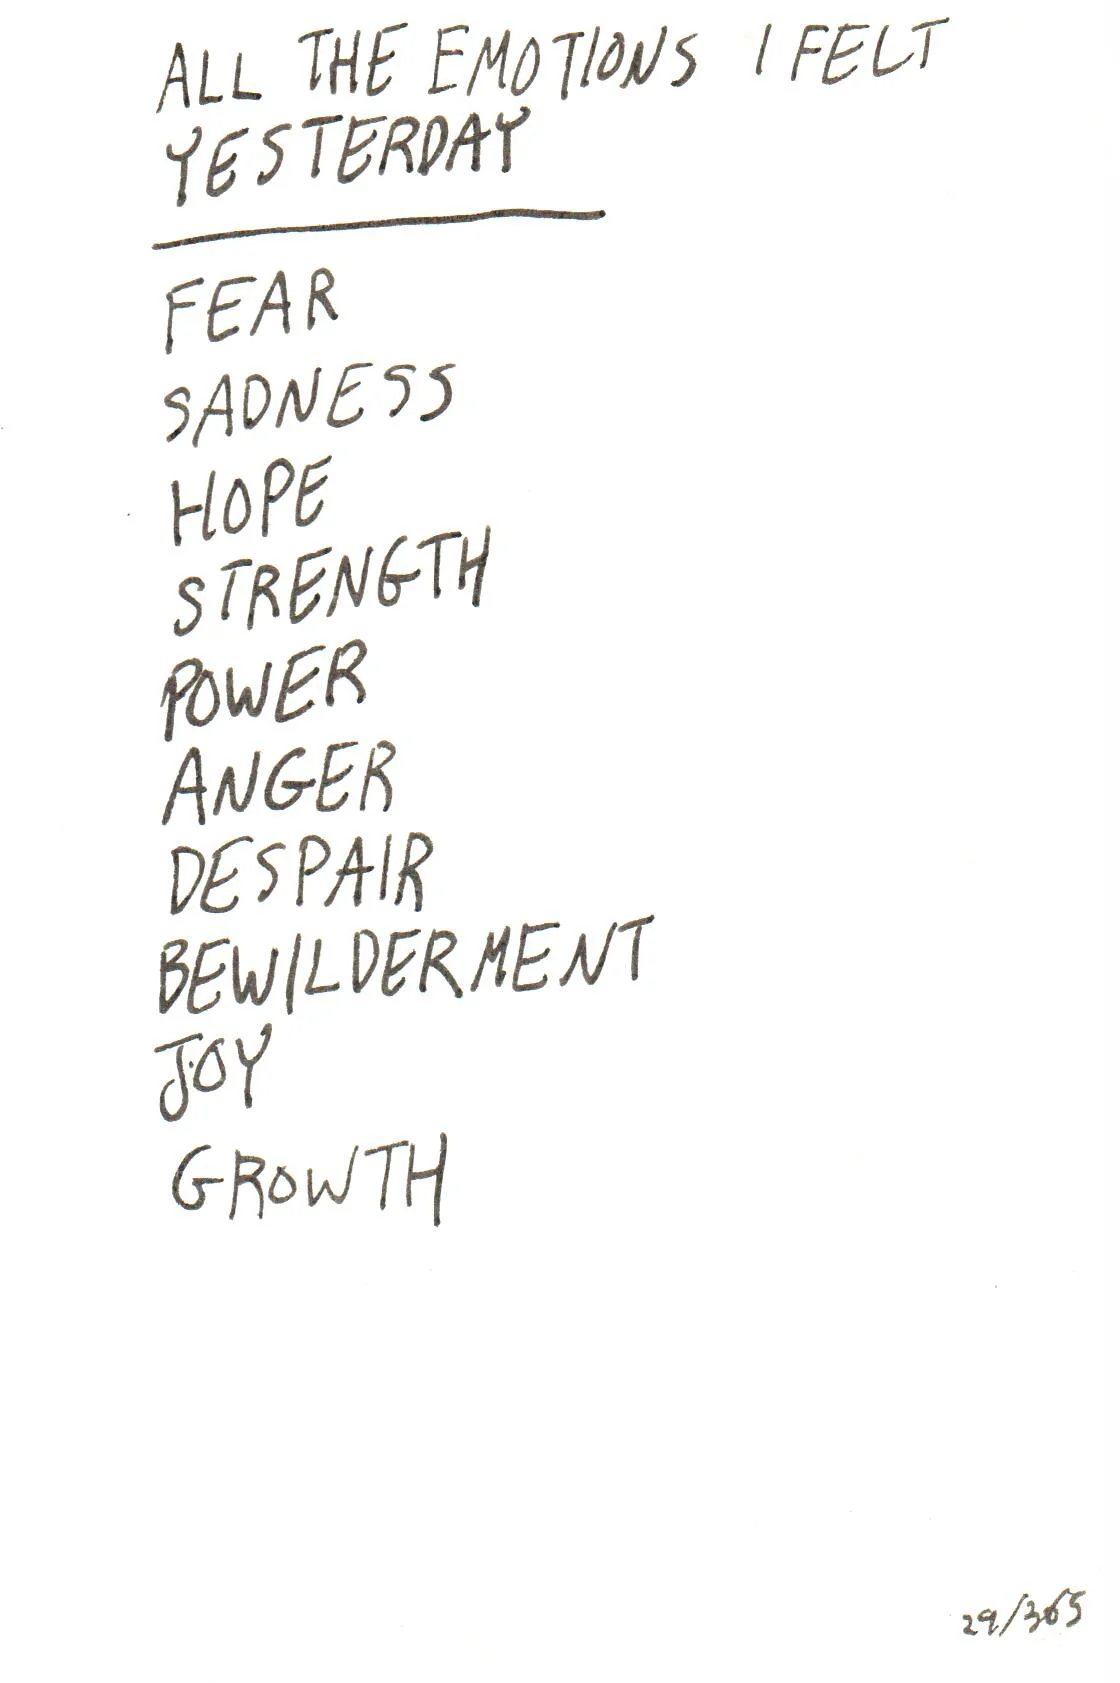 ALL THE EMOTIONS I FELT
YESTERDAY
FEAR
SADNESS
HOPE
STRENGTH
POWER
ANGER
DESPAIR
BEWILDERMENT
JOY
GROWTH
29/365